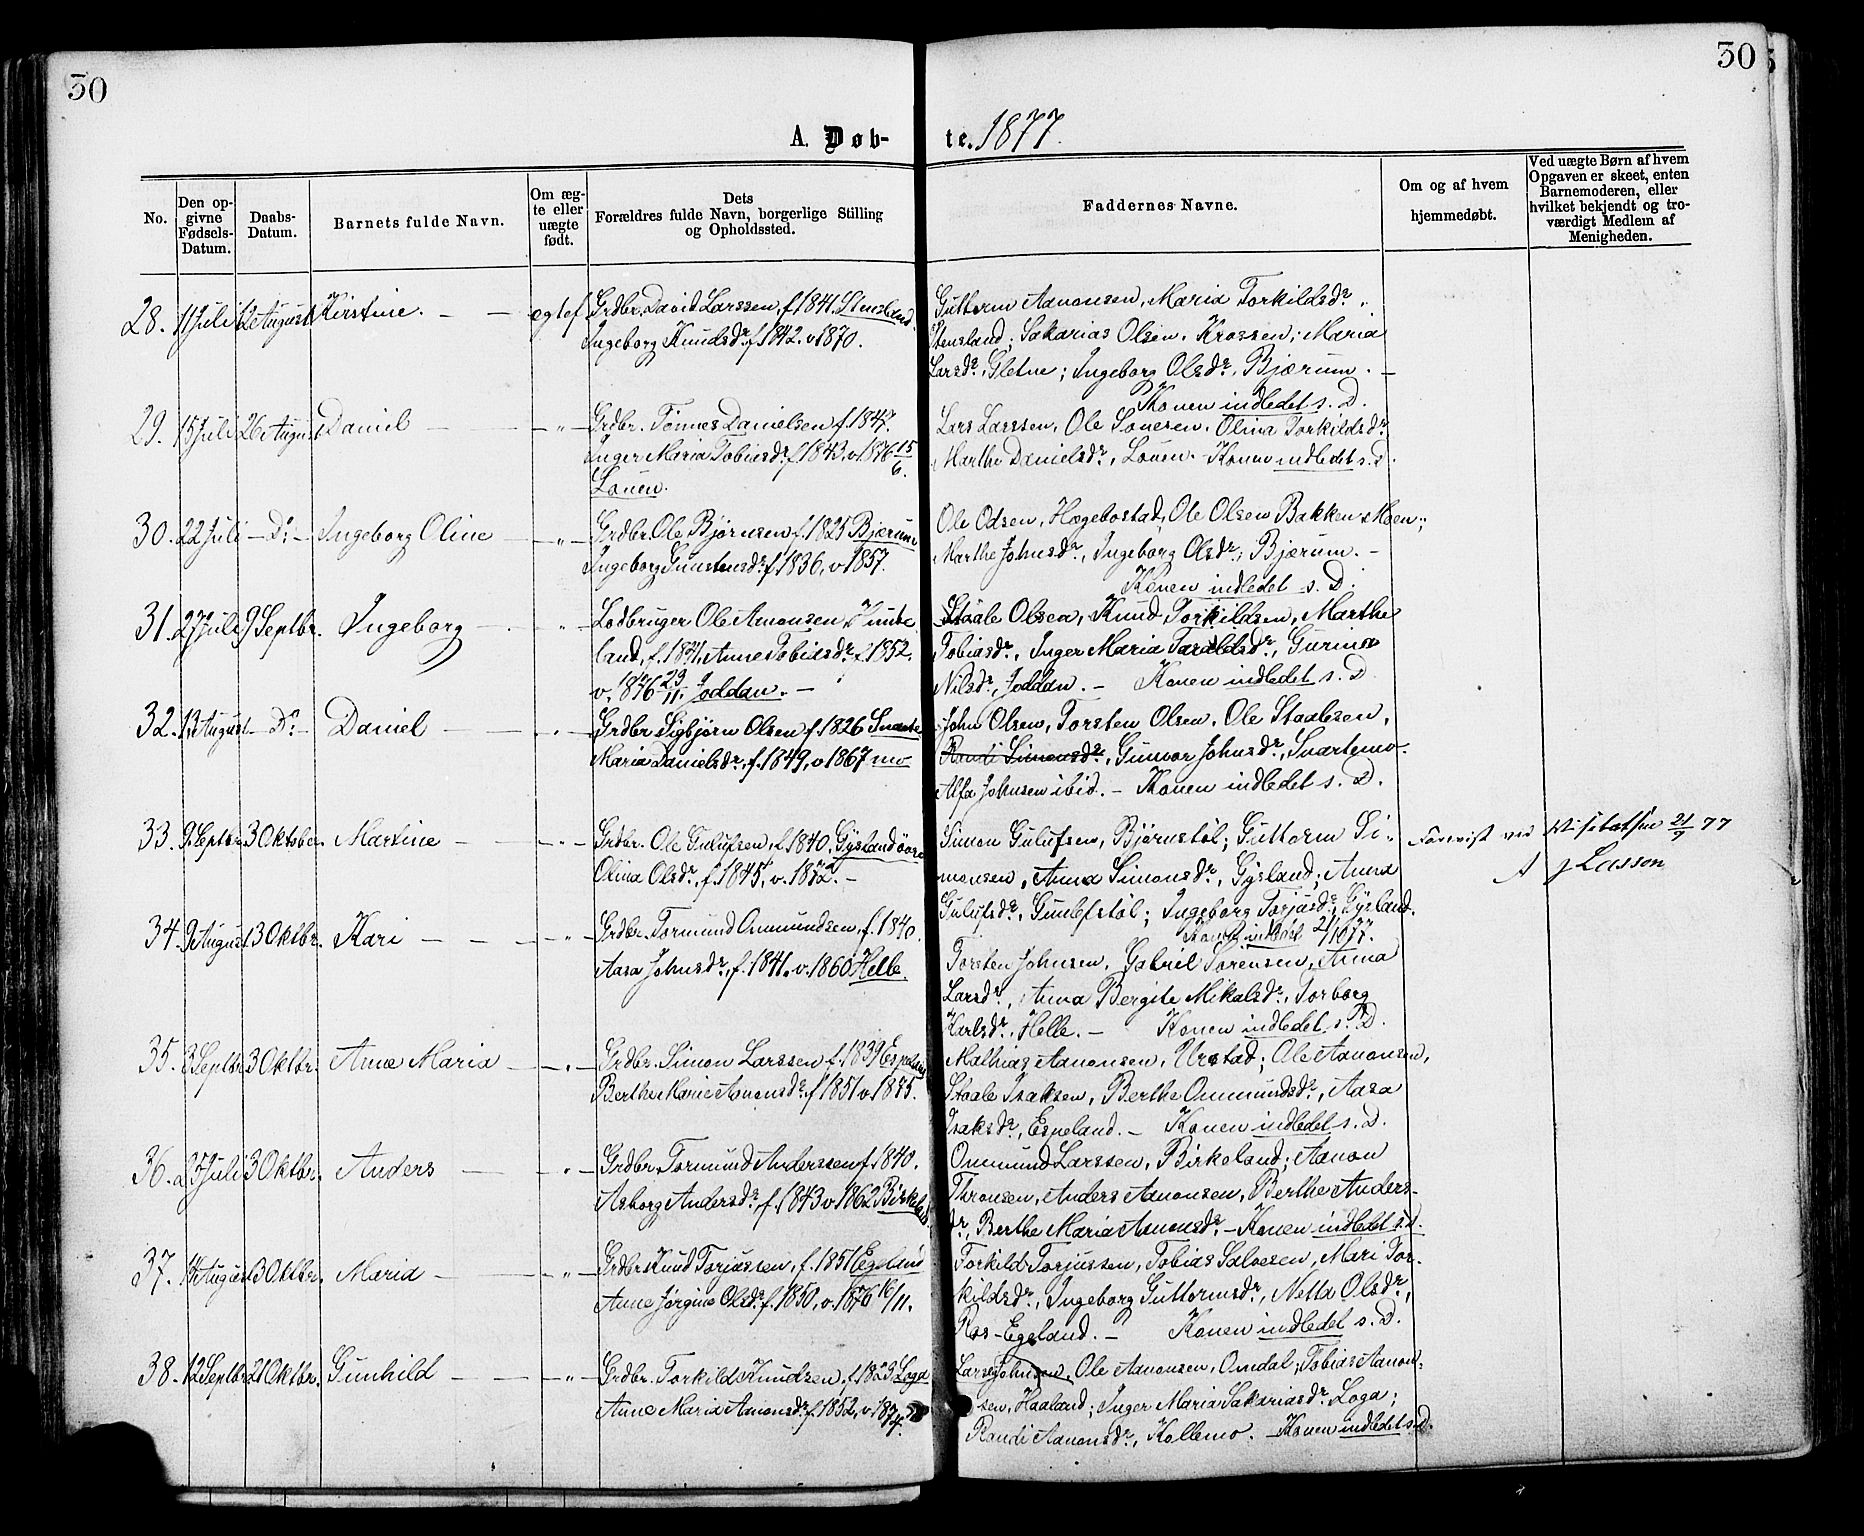 30
30
A. Døb-
te. 1877.
No.
Den op-
givne
Fødsels-
Datum.
Daabs-
Datum.
Barnets fulde Navn.
Om æg-
te eller
uægte
født.
Dets
Forældres fulde Navn, borgerlige Stilling
og Opholdssted.
Faddernes Navne.
Om og af hvem
hjemmedøbt.
Ved uægte Børn af hvem
Opgaven er skeet, enten
Barnemoderen, eller
hvilket bekjendt og tro-
værdigt Medlem af
Menigheden.
28. 11 Juli 12 August Kirstine. — — egtef. Grdbr. David Larssen, f. 1841. Stensland.
Ingeborg Knudsdr. f. 1842. v 1870.
Guttorm Aanonsen, Maria Torkildsdr.,
Stensland; Sakarias Olsen, Krossen; Maria
Larsdr., Gletne; Ingeborg Olsdr., Bjærum. —
Konen indledet s. D.
29. 15 Juli 26 August Daniel — — — „ — Grdbr. Tønnes Danielsen f. 1847.
Inger Maria Tobiasdr. f. 1843. v. 1876 15/6.
Lauen.
Lars Larssen, Ole Sonesen, Olina Torkildsdr.
Marthe Danielsdr., Lauen. — Konen indledet s. D.
30. 22 Juli — Do — Ingeborg Oline — — „ — Grdbr. Ole Bjørnsen f. 1825 Bjærum
Ingeborg Gunstensdr. f. 1836, v 1857.
Ole Odsen, Hægebostad, Ole Olsen Bakken Moen;
Marthe Johnsdr., Ingeborg Olsdr., Bjærum. —
Konen indledet s. D.
31. 27 Juli 9 Septbr. Ingeborg — — — „ — Lodbruger Ole Amonsen, Kunse
land, f. 1841, Anne Tobiasdr. f. 1852.
v. 1876 29/11. Joddan. —
Staale Olsen, Knud Torkildsen, Marthe
Tobiasdr., Inger Maria Taraldsdr., Gurina
Nilsdr., Joddan. — Konen indledet s. D.
32. 13 August — Do — Daniel — — „ — Grdbr. Sigbjørn Olsen f. 1826 Snarte
Maria Danielsdr., f. 1849, v 1867 mo
John Olsen, Torsten Olsen, Ole Staalesen,
Randi Simonsdr., Gunvor Johnsdr., Snartemo.
Alfa Johnsen ibid. — Konen indledet s. D.
33. 9 Septbr. 3 Oktober Martine — — — „ — Grdbr. Ole Gulufsen, f. 1840, Gyslandöaren
Olina Olsdr., f. 1845, v. 1872. —
Simon Gulufsen, Bjørnstøl; Guttorm Si-
monsen, Anna Simonsdr., Gysland; Anna
Gulufsdr., Gunlefstøl; Ingeborg Torjusdr., Gysland.
Konen indledt 21/10 77.
Forevist ved Visitatsen 21/9 77
J Lasson
34. 9 August 3 Oktbr. Kari — — — „ — Grdbr. Tormund Ommundsen, f. 1840.
Aasa Johnsdr., f. 1841. v. 1860 Helle.
Torsten Johnsen, Gabriel Sørensen, Anna
Larsdr., Anna Bergite Mikalsdr., Torborg
Karlsdr., Helle. — Konen indledet s. D.
35. 3 Septbr. 3 Oktbr. Anne Maria — — „ — Grdbr. Simon Larssen f. 1839 Espeland
Berthe Marie Aanonsdr. f 1851 v 1875.
Mathias Aanonsen, Urstad; Ole Aanonsen,
Staale Isaksen, Berthe Ommundsdr., Aasa
Isaksdr., Espeland. — Konen indledet s. D.
36. 25 Juli 3 Oktbr. Anders — — „ — Grdbr. Tormund Anderssen f. 1840.
Asborg Andersdr. f. 1843 v 1862 Birkeland.
Ommund Larssen, Birkeland; Aanon
Thronsen, Anders Aanonsen, Berthe Anders-
dr., Berthe Maria Aanonsdr. — Konen indledet s. D.
37. 14 August 3 Oktbr. Maria — — — „ — Grdbr. Knud Torjussen, f. 1851 Egeland
Anne Jørgine Olsdr. f. 1850, v. 1876 16/11.
Torkild Torjussen, Tobias Salvesen, Mari Tor-
kildsdr., Ingeborg Guttormsdr., Netta Olsdr.,
Ros-Egeland. — Konen indledet s. D.
38. 12 Septbr 21 Oktbr. Gunhild — — — „ — Grdbr. Torkild Knudsen, f. 1823 Loga
Anne Maria Aanonsdr. f. 1852, v. 1874.
Lars Johnsen, Ole Aanonsen, Omdal; Tobias Aanon-
sen, Haaland; Inger Maria Sakariasdr. Loga;
Randi Aanonsdr., Kollemo. — Konen indledet s. D.